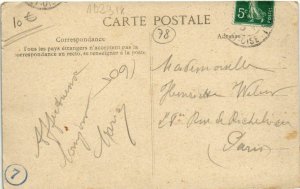 10€
AD2318
CARTE POSTALE
Correspondance
Tous les pays étrangers n'acceptent pas la
correspondance au recto, se renseigner à la poste
Affectueux
Marie
78
Mademoiselle
Henriette Weber
Rue de Richelieu
Paris
7